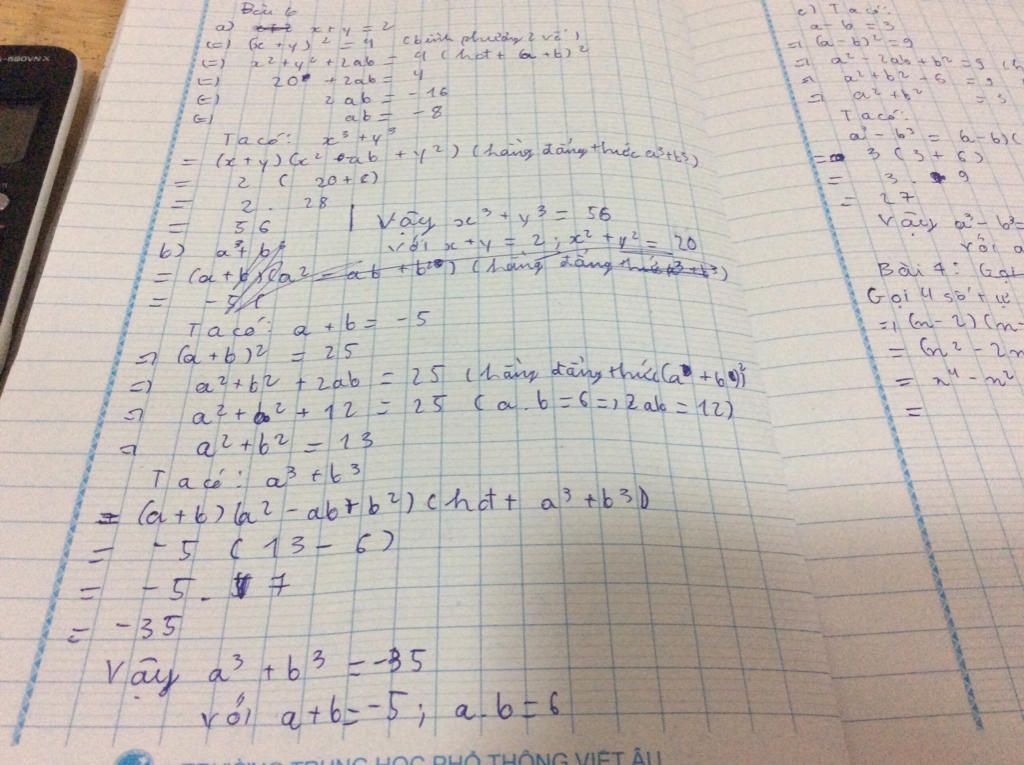 -580VN X
Bài 6
a) x + y = 2
(=) (x + y)² = 4 (bình phương 2 vế)
(=) x² + y² + 2ab = 4 (hđt (a+b)²
(=) 20 + 2ab = 4
(=) 2ab = -16
(=) ab = -8
Ta có: x³ + y³
= (x + y) (x² - ab + y²) (hằng đẳng thức a³+b³)
= 2 ( 20+8)
= 2 . 28
= 56 | Vậy x³ + y³ = 56
với x + y = 2 ; x² + y² = 20
b) a³ + b³
= (a+b)(a² - ab + b²) (hằng đẳng thức a³+b³)
= -5 (
Ta có: a + b = -5
=) (a+b)² = 25
=) a² + b² + 2ab = 25 (hằng đẳng thức (a + b)²
=) a² + b² + 12 = 25 (a.b = 6 =) 2ab = 12)
=) a² + b² = 13
Ta có: a³ + b³
= (a + b) (a² - ab + b²) (hđt a³ + b³)
= -5 (13 - 6)
= -5 . 7
= -35
Vậy a³ + b³ = -35
với a+b = -5 ; a.b = 6
TRƯỜNG TRUNG HỌC PHỔ THÔNG VIỆT ÂU
c) Ta có:
a - b = 3
=) (a - b)² = 9
=) a² - 2ab + b² = 9 (h
=) a² + b² - 6 = 9
=) a² + b² = 3
Ta có:
a³ - b³ = (a-b)(
= 3 (3 + 6)
= 3 . 9
= 27
Vậy a³ - b³ =
với a
Bài 7: Gọi
Gọi 4 số tự
=) (n - 2) (n -
= (n² - 2n
= n⁴ - n²
=